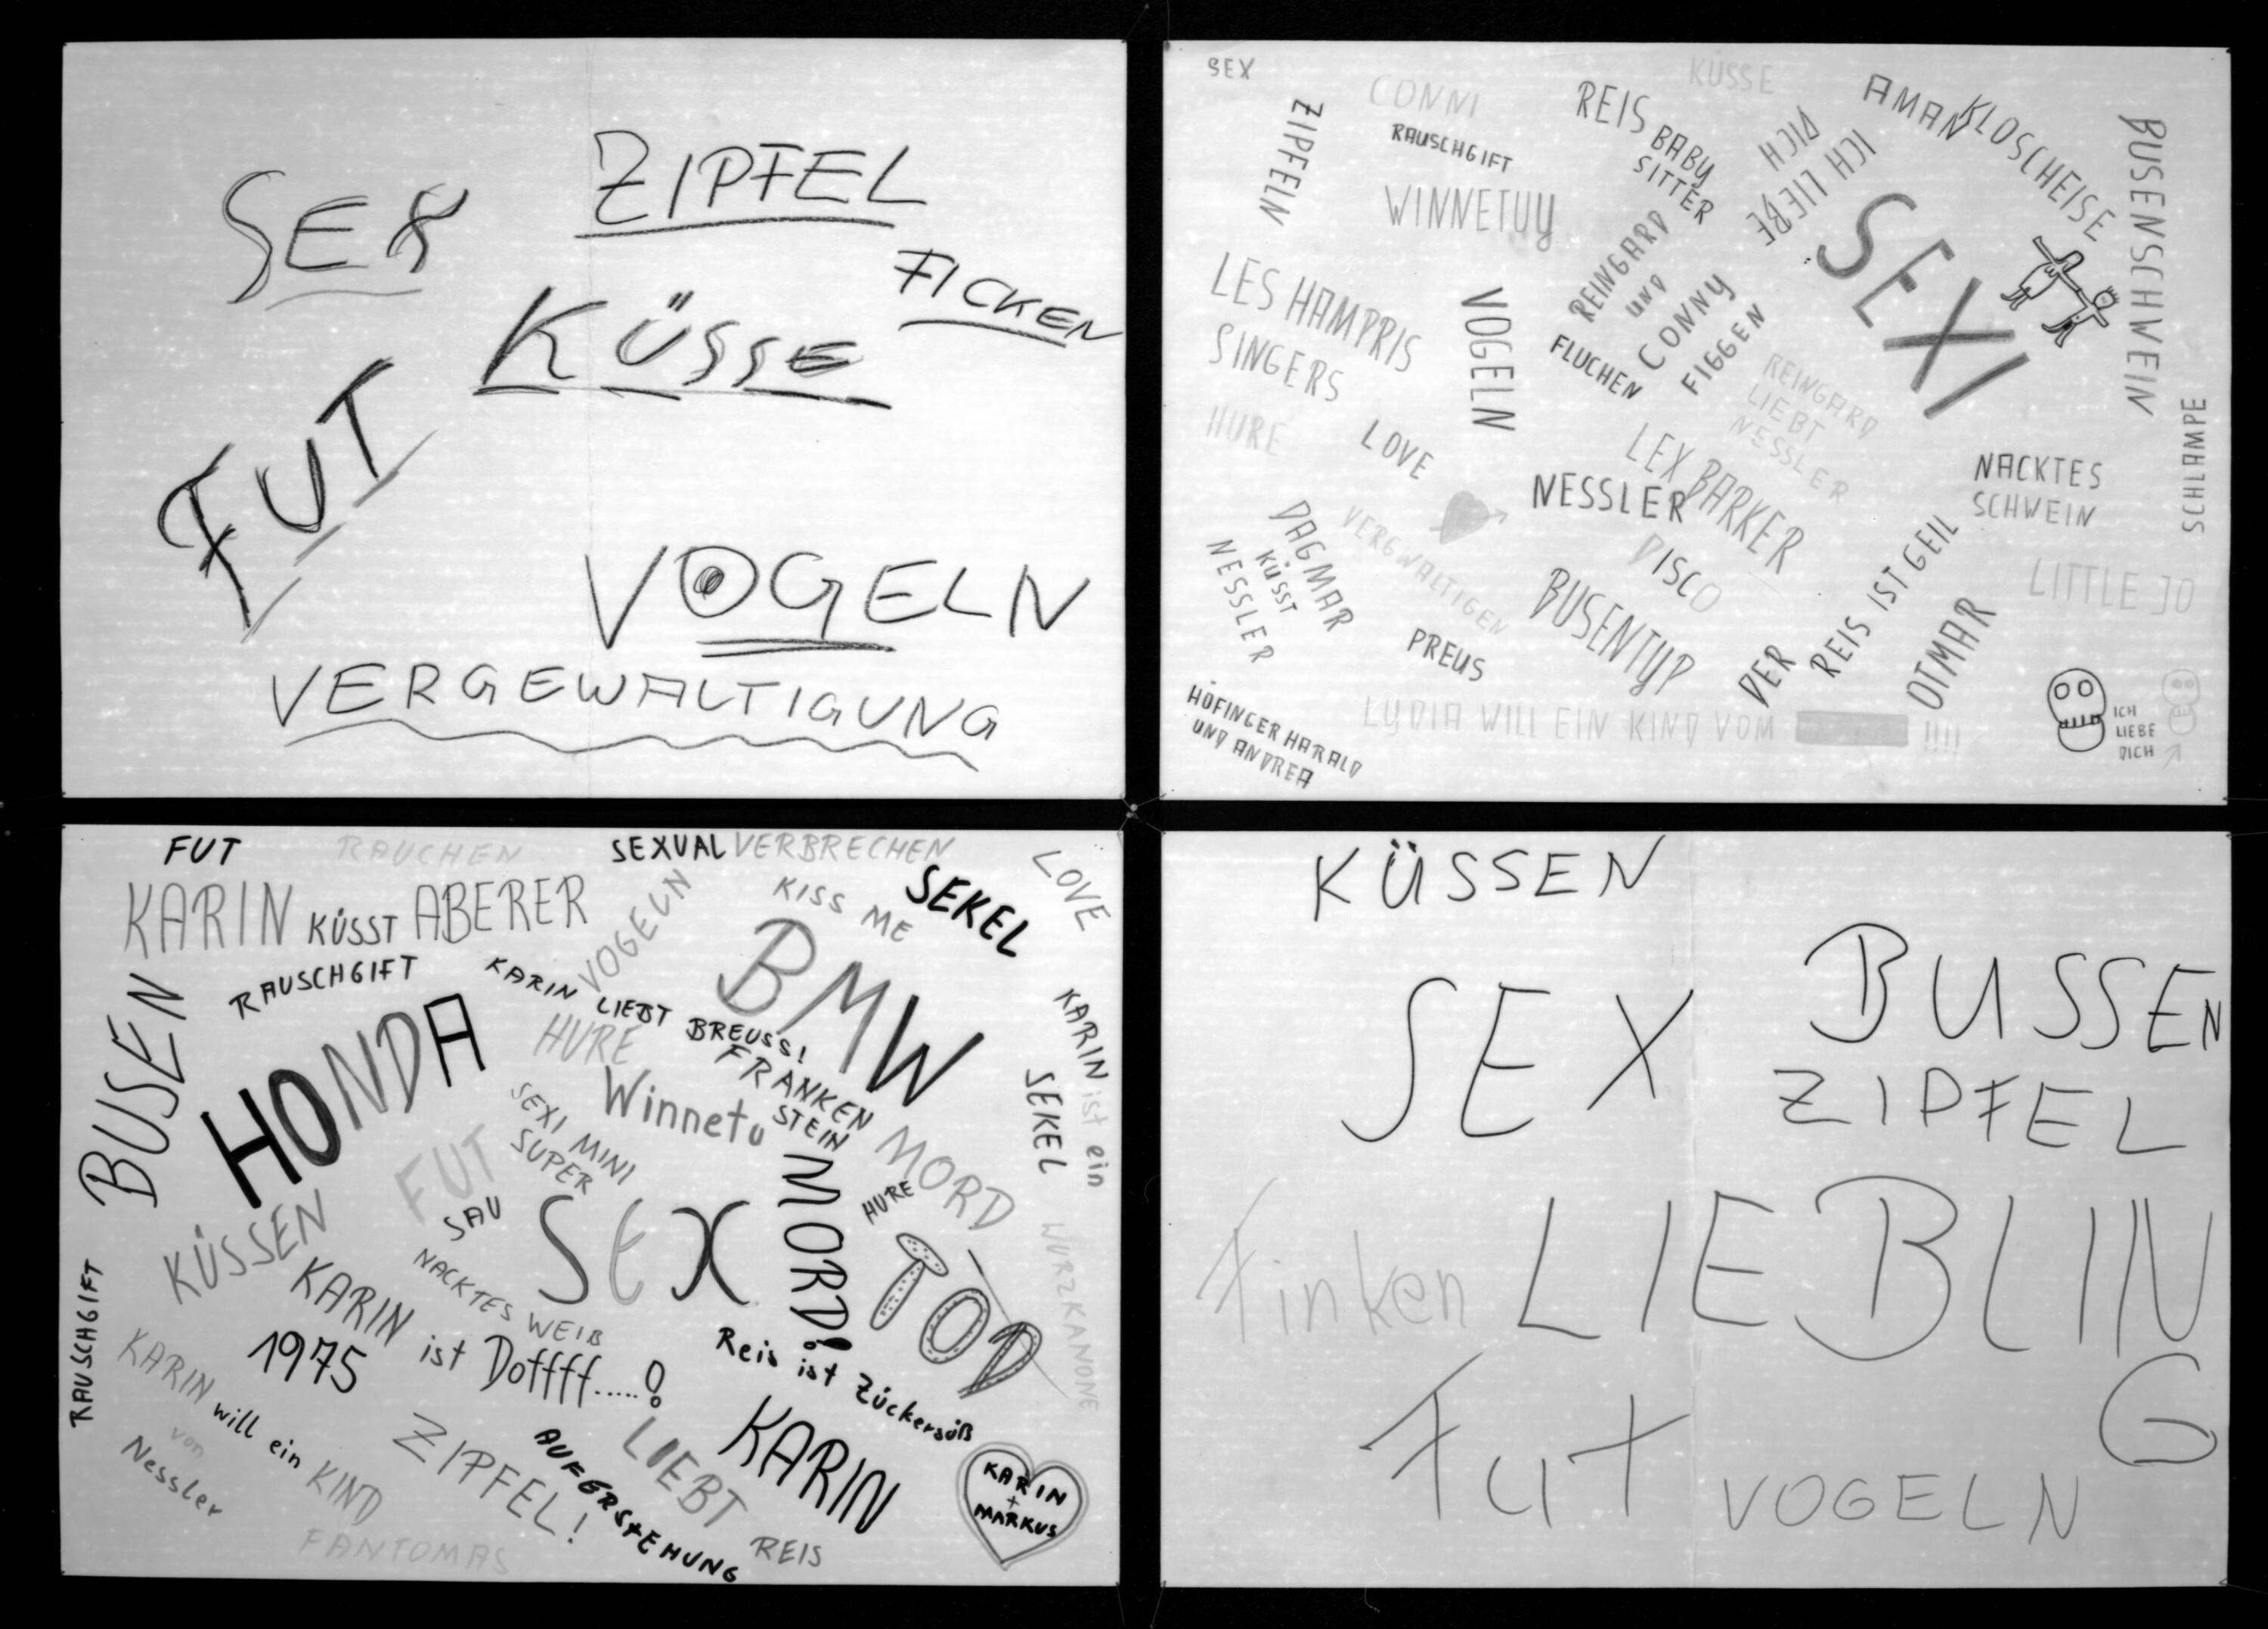 SEX
ZIPFEL
FICKEN
KÜSSE
FUT
VOGELN
VERGEWALTIGUNG
SEX
CONNI
KÜSSE
ZIPFELN
RAUSCHGIFT
WINNETUY
REIS
BABY
SITTER
ICH LIEBE
DICH
AMAN
KLOSCHEISE
BUSENSCHWEIN
SEXI
LES HAMPRIS
SINGERS
VOGELN
REINGARD
UND
CONNY
FIGGEN
FLUCHEN
REINGARD
LIEBT
NESSLER
HURE
LOVE
NESSLER
LEX BARKER
NACKTES
SCHWEIN
SCHLAMPE
DAGMAR
KÜSST
NESSLER
VERGWALTIGEN
DISCO
BUSENTYP
PREUS
DER
REIS IST GEIL
OTMAR
LITTLE JO
HÖFINGER HARALD
UND ANDREA
LYDIA WILL EIN KIND VOM
!!!!
ICH
LIEBE
DICH
FUT
RAUCHEN
SEXUALVERBRECHEN
LOVE
KARIN KÜSST ABERER
VOGELN
KISS ME
SEKEL
RAUSCHGIFT
BUSEN
HONDA
KARIN LIEBT BREUSS!
BMW
HURE
FRANKEN
STEIN
Winnetu
KARIN ist ein
SEKEL
SEXI MINI
SUPER
FUT
SAU
MORD
HURE
MORD!
SEX
TOD
KÜSSEN
NACKTES WEIB
WURZKANONE
RAUSCHGIFT
KARIN ist Doffff.....!
1975
Reis ist Zückersüß
KARIN will ein KIND
von
Nessler
ZIPFEL!
AUFERSTEHUNG
KARIN
LIEBT
REIS
KARIN
+
MARKUS
FANTOMAS
KÜSSEN
SEX
BUSSEN
ZIPFEL
Finken
LIEBLIN
G
Fut
VOGELN